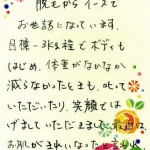 脱毛からイースで
お世話になっています。
目標－3kg程でボディも
はじめ、体重がなかなか
減らなかったときも、叱って
いただいたり、笑顔ではげ
げましていただきました。
お肌がきれいなった